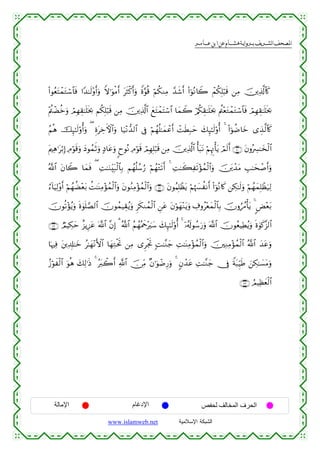 المصحف الشريف برواية هشام عن ابن عامر
كَٱلَّذِينَ مِن قَبۡلِكُمۡ كَانُوٓاْ أَشَدَّ مِنكُمۡ قُوَّةٗ وَأَكۡثَرَ أَمۡوَٰلٗا وَأَوۡلَٰدٗا فَٱسۡتَمۡتَعُواْ
بِخَلَٰقِهِمۡ فَٱسۡتَمۡتَعۡتُم بِخَلَٰقِكُمۡ كَمَا ٱسۡتَمۡتَعَ ٱلَّذِينَ مِن قَبۡلِكُم بِخَلَٰقِهِمۡ وَخُضۡتُمۡ
كَٱلَّذِي خَاضُوٓاْۚ أُوْلَٰٓئِكَ حَبِطَتۡ أَعۡمَٰلُهُمۡ فِي ٱلدُّنۡيَا وَٱلۡأٓخِرَةِۖ وَأُوْلَٰٓئِكَ هُمُ
ٱلۡخَٰسِرُونَ أَلَمۡ يَأۡتِهِمۡ نَبَأُ ٱلَّذِينَ مِن قَبۡلِهِمۡ قَوۡمِ نُوحٖ وَعَادٖ وَثَمُودَ وَقَوۡمِ إِبۡرَٰهَٰمَ
وَأَصۡحَٰبِ مَدۡيَنَ وَٱلۡمُؤۡتَفِكَٰتِۚ أَتَتۡهُمۡ رُسُلُهُم بِٱلۡبَيِّنَٰتِۖ فَمَا كَانَ ٱللَّهُ
لِيَظۡلِمَهُمۡ وَلَٰكِن كَانُوٓاْ أَنفُسَهُمۡ يَظۡلِمُونَ وَٱلۡمُؤۡمِنُونَ وَٱلۡمُؤۡمِنَٰتُ بَعۡضُهُمۡ أَوۡلِيَآءُ
بَعۡضٖۚ يَأۡمُرُونَ بِٱلۡمَعۡرُوفِ وَيَنۡهَوۡنَ عَنِ ٱلۡمُنكَرِ وَيُقِيمُونَ ٱلصَّلَوٰةَ وَيُؤۡتُونَ
ٱلزَّكَوٰةَ وَيُطِيعُونَ ٱللَّهَ وَرَسُولَهُۥٓۚ أُوْلَٰٓئِكَ سَيَرۡحَمُهُمُ ٱللَّهُۗ إِنَّ ٱللَّهَ عَزِيزٌ حَكِيمٞ
وَعَدَ ٱللَّهُ ٱلۡمُؤۡمِنِينَ وَٱلۡمُؤۡمِنَٰتِ جَنَّٰتٖ تَجۡرِي مِن تَحۡتِهَا ٱلۡأَنۡهَٰرُ خَٰلِدِينَ فِيهَا
وَمَسَٰكِنَ طَيِّبَةٗ فِي جَنَّٰتِ عَدۡنٖۚ وَرِضۡوَٰنٞ مِّنَ ٱللَّهِ أَكۡبَرُۚ ذَٰلِكَ هُوَ ٱلۡفَوۡزُ
ٱلۡعَظِيمُ
الحرف المخالف لحفص الإدغام الإمالة
الشبكة الإسلامية www.islamweb.net